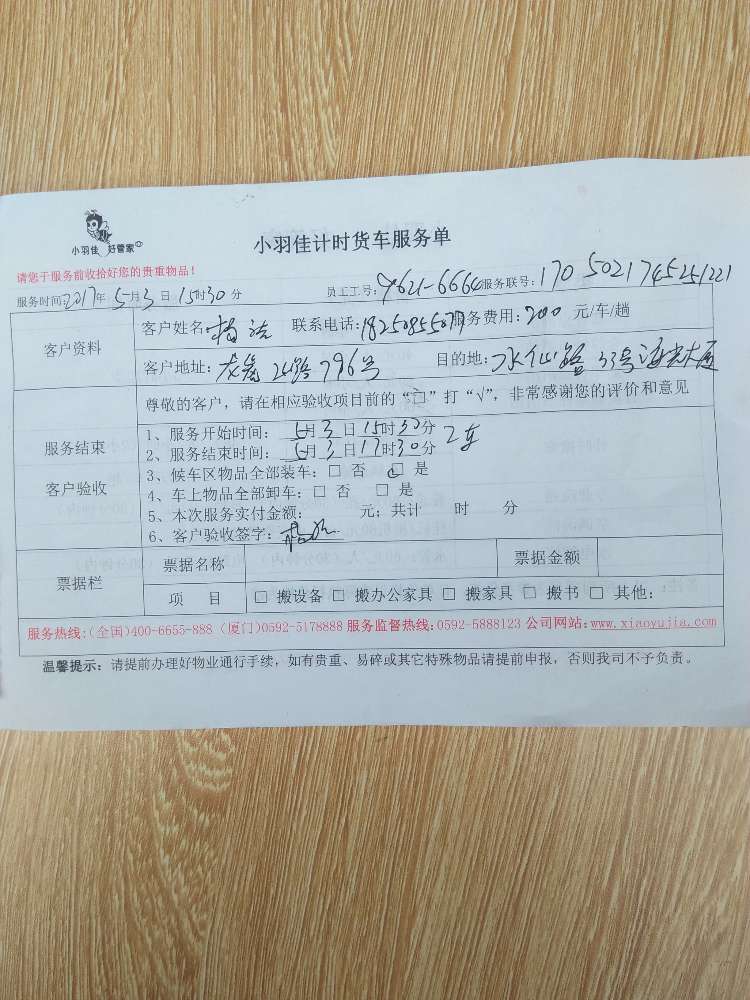 小羽佳 好管家
小羽佳计时货车服务单
请您于服务前收拾好您的贵重物品！
服务时间2017年5月3日15时30分 员工工号：9621-6664服务联号：1705021745251221
客户资料
客户姓名： 联系电话：18250855077服务费用：200 元/车/趟
客户地址： 796号 目的地：水仙路 33号海光大厦
服务结束
客户验收
尊敬的客户，请在相应验收项目前的“□”打“√”，非常感谢您的评价和意见
1、服务开始时间： 5月3日15时30分 2车
2、服务结束时间： 5月3日17时30分
3、候车区物品全部装车：□ 否 □ 是
4、车上物品全部卸车：□ 否 □ 是
5、本次服务实付金额： 元；共计 时 分
6、客户验收签字：
票据栏
票据名称 票据金额
项 目 □ 搬设备 □ 搬办公家具 □ 搬家具 □ 搬书 □ 其他：
服务热线：（全国）400-6655-888（厦门）0592-5178888 服务监督热线：0592-5888123 公司网站：www.xiaoyujia.com
温馨提示：请提前办理好物业通行手续，如有贵重、易碎或其它特殊物品请提前申报，否则我司不予负责。